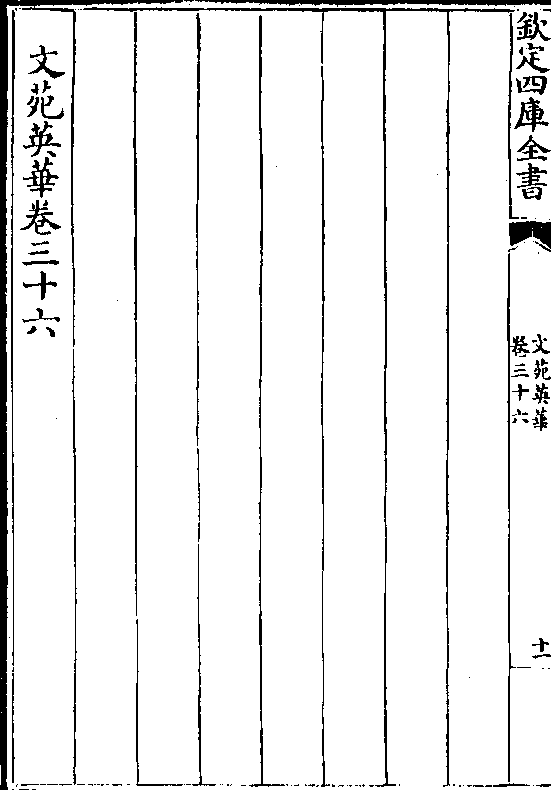 欽定四庫全書
文苑英華
卷三十六
十一
文苑英華卷三十六